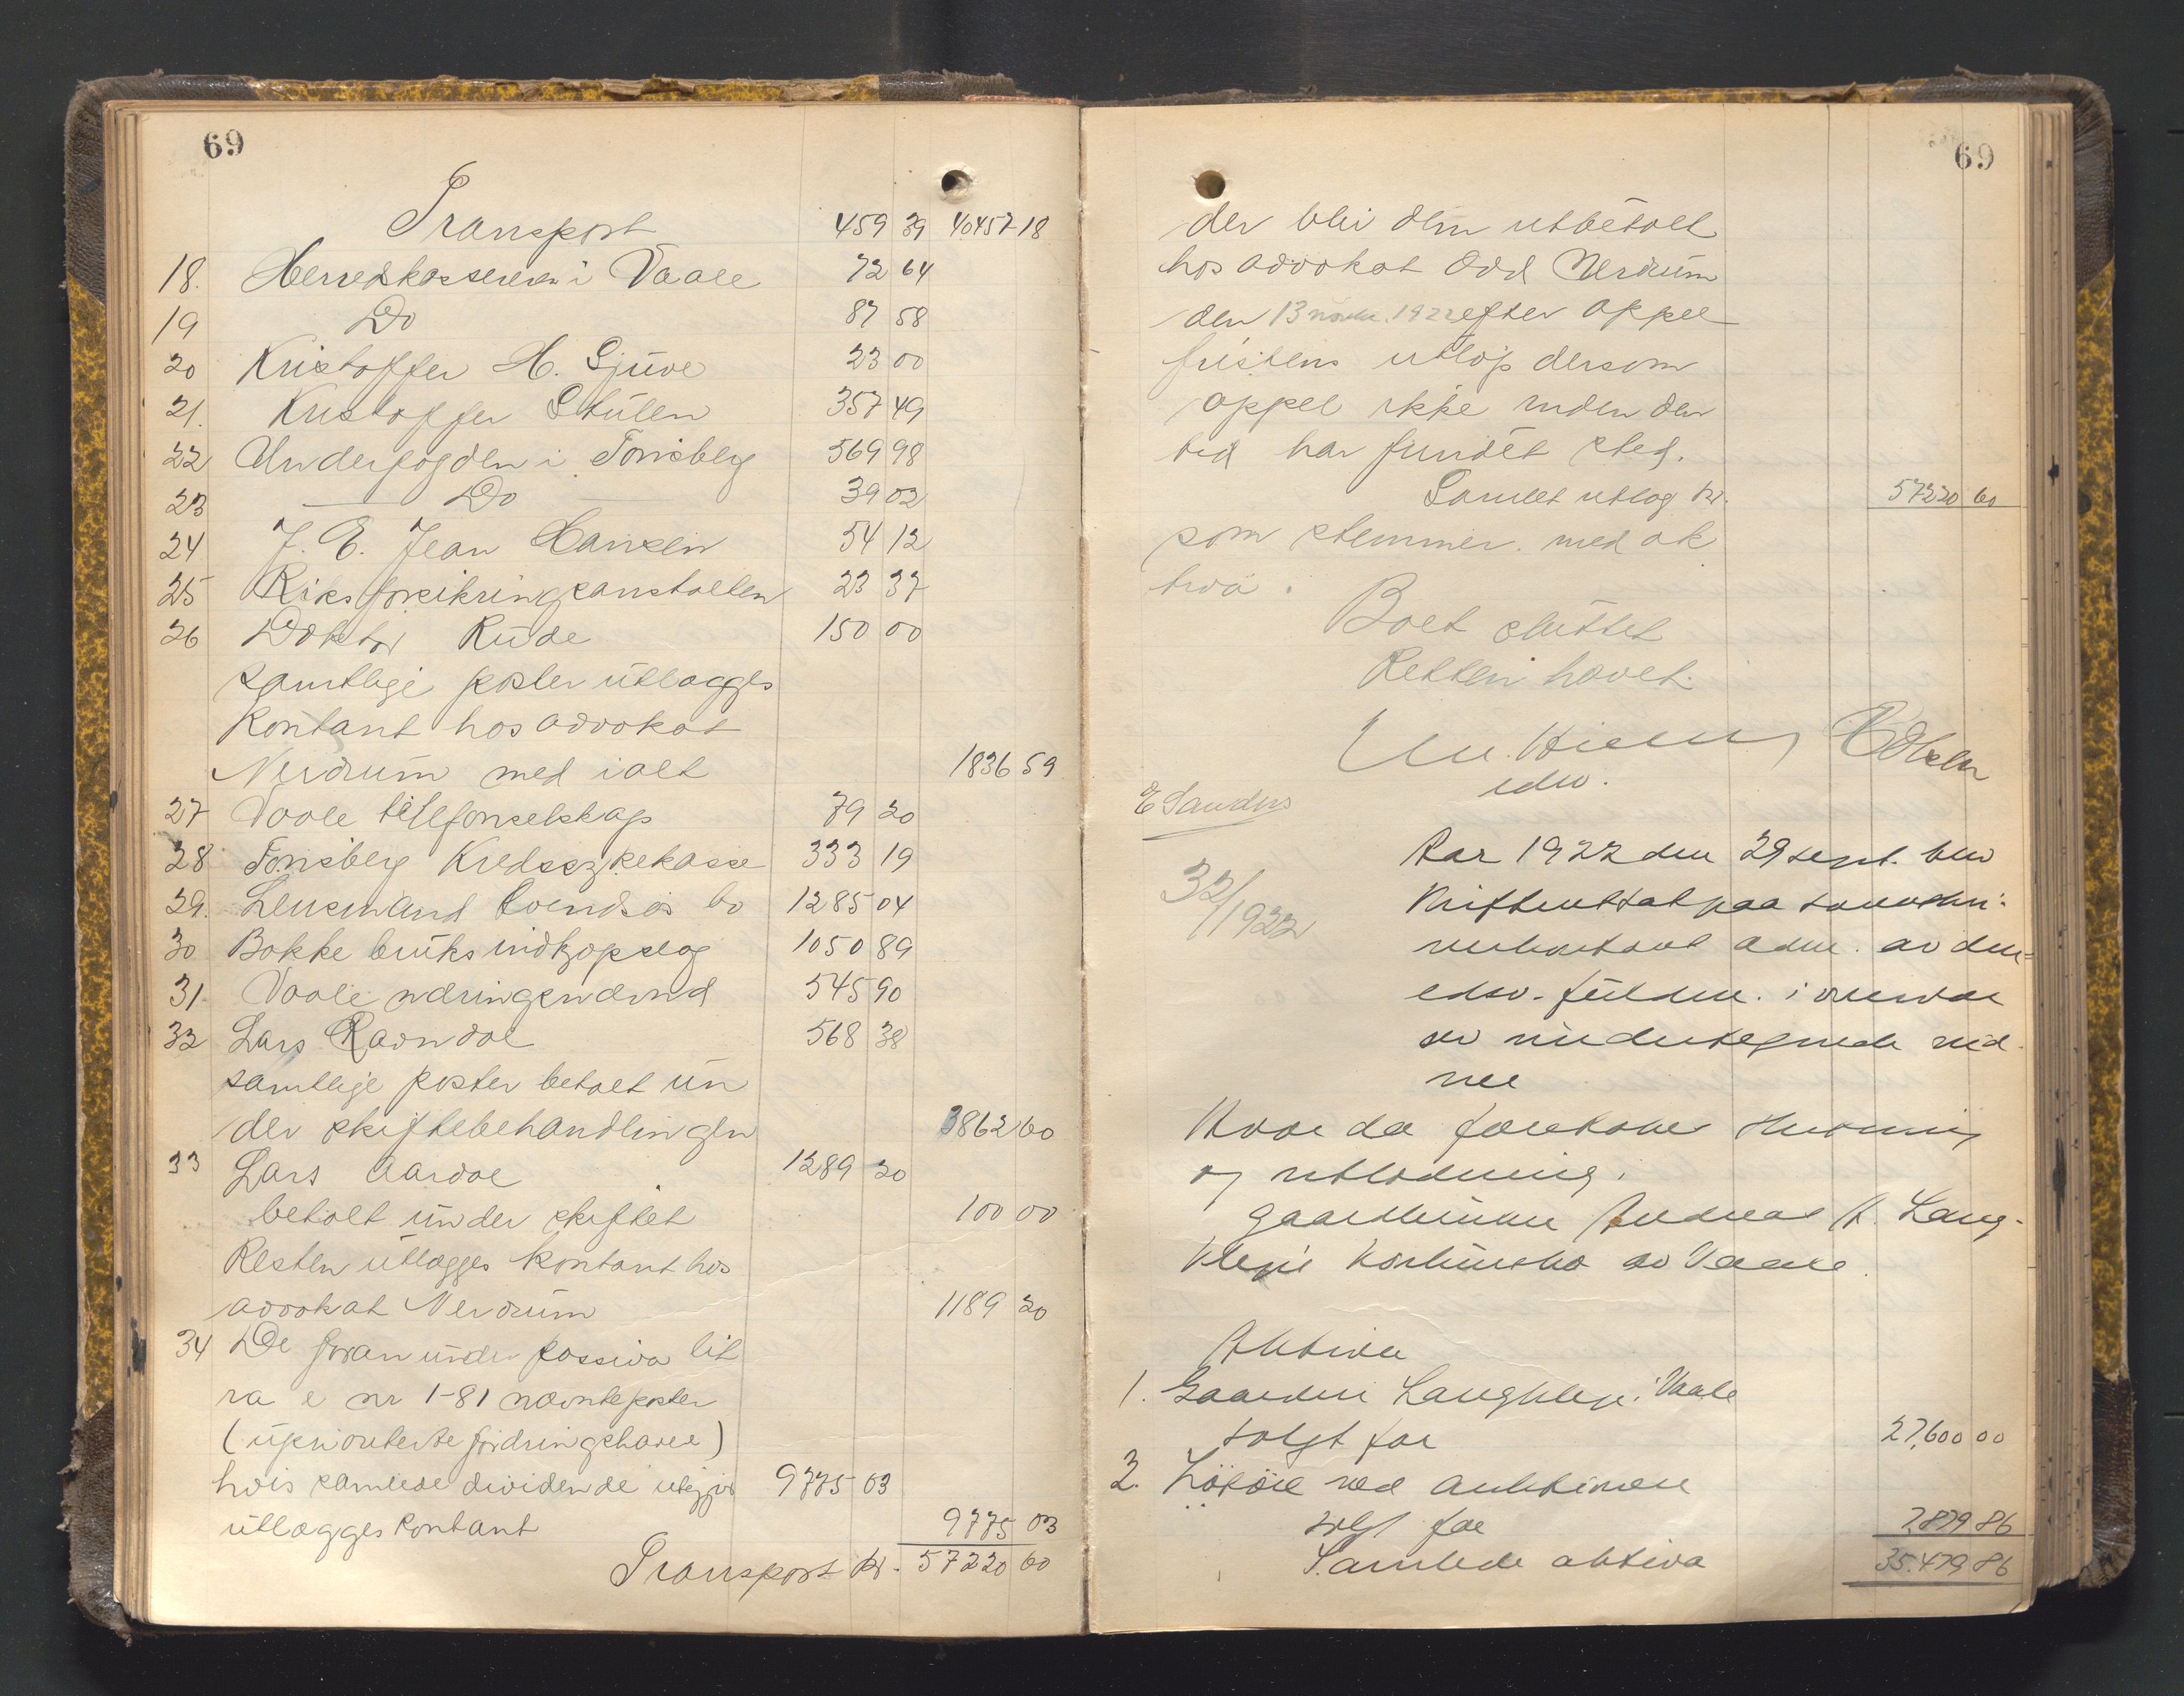 69
Transport 459 39 40457 18
18. Herredskassereren i Vaale 72 64
19 Do 87 58
20 Kristoffer H. Gjúve 23 00
21. Kristoffer Stúlen 357 49
22 Underfogden i Tønsberg 569 98
23 — Do — 39 02
24 J. E. Jean Hansen 54 12
25 Riksforsikringsanstalten 23 37
26 Doktor Rúde 150 00
samtlige poster útlægges
kontant hos advokat
Nerdrum med ialt 1836 59
27 Vaale telefonselskap 79 20
28 Tønsberg Kredssykekasse 333 19
29. Lensmand bo 1285 04
30 Bakke brúks indkjøpslag 1050 89
31. Vaale 545 90
32 Lars Ravndal 568 38
samtlige poster betalt ún
der skiftebehandlingen 3862 60
33 Lars Aardal 1289 20
betalt únder skiftet 100 00
Resten útlægges kontant hos
advokat Nerdrum 1189 20
34 De foran únder passiva lit
ra e nr 1-81 nævnte poster
(úprioriterte fordringshavere)
hvis samlede dividende utgjør 9775 03
útlægges kontant 9775 03
Transport kr. 57220 60
69
der bli dem utbetalt
hos advokat Odd Nerdrum
den 13 novbr. 1922 efter appel
fristens utløp dersom
appel ikke inden den
tid har fundet sted.
Samlet utlæg kr. 57220 60
som stemmer med ak
tiva.
Boet slúttet
Retten hævet.
edsv.
E Sanders
32/1922
Aar 1922 den 29 sept. blev
skifteret sat paa sorenskri-
adm. av den
edsv. fúldm. i overvær
av undertegnede vid
ner
Hvor da foretokes slutning
og utlodning i
gaardbruker Andreas A. Lang-
klepps konkursbo av Vaale.
Aktiva
1. Gaarden Langklep i Vaale
solgt for 27,600 00
2. Løsøre ved auktionen
solgt for 7,879 86
Samlede aktiva 35.479 86